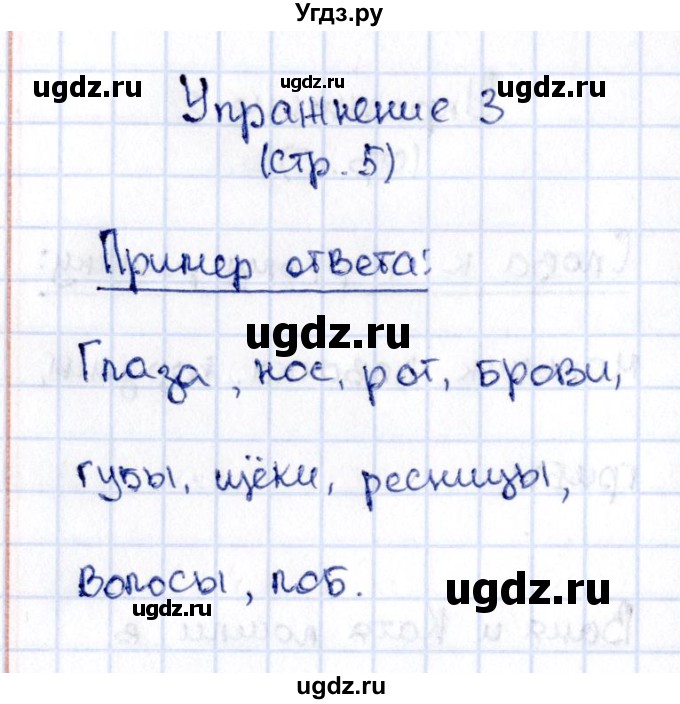 Угдз.ру
ugdz.ru
ugdz.ru
ugdz.ru
Упражнение 3
(стр. 5)
Пример ответа:
ugdz.ru
Глаза, нос, рот, брови,
губы, щёки, ресницы,
волосы, лоб.
ugdz.ru
ugdz.ru
ugdz.ru